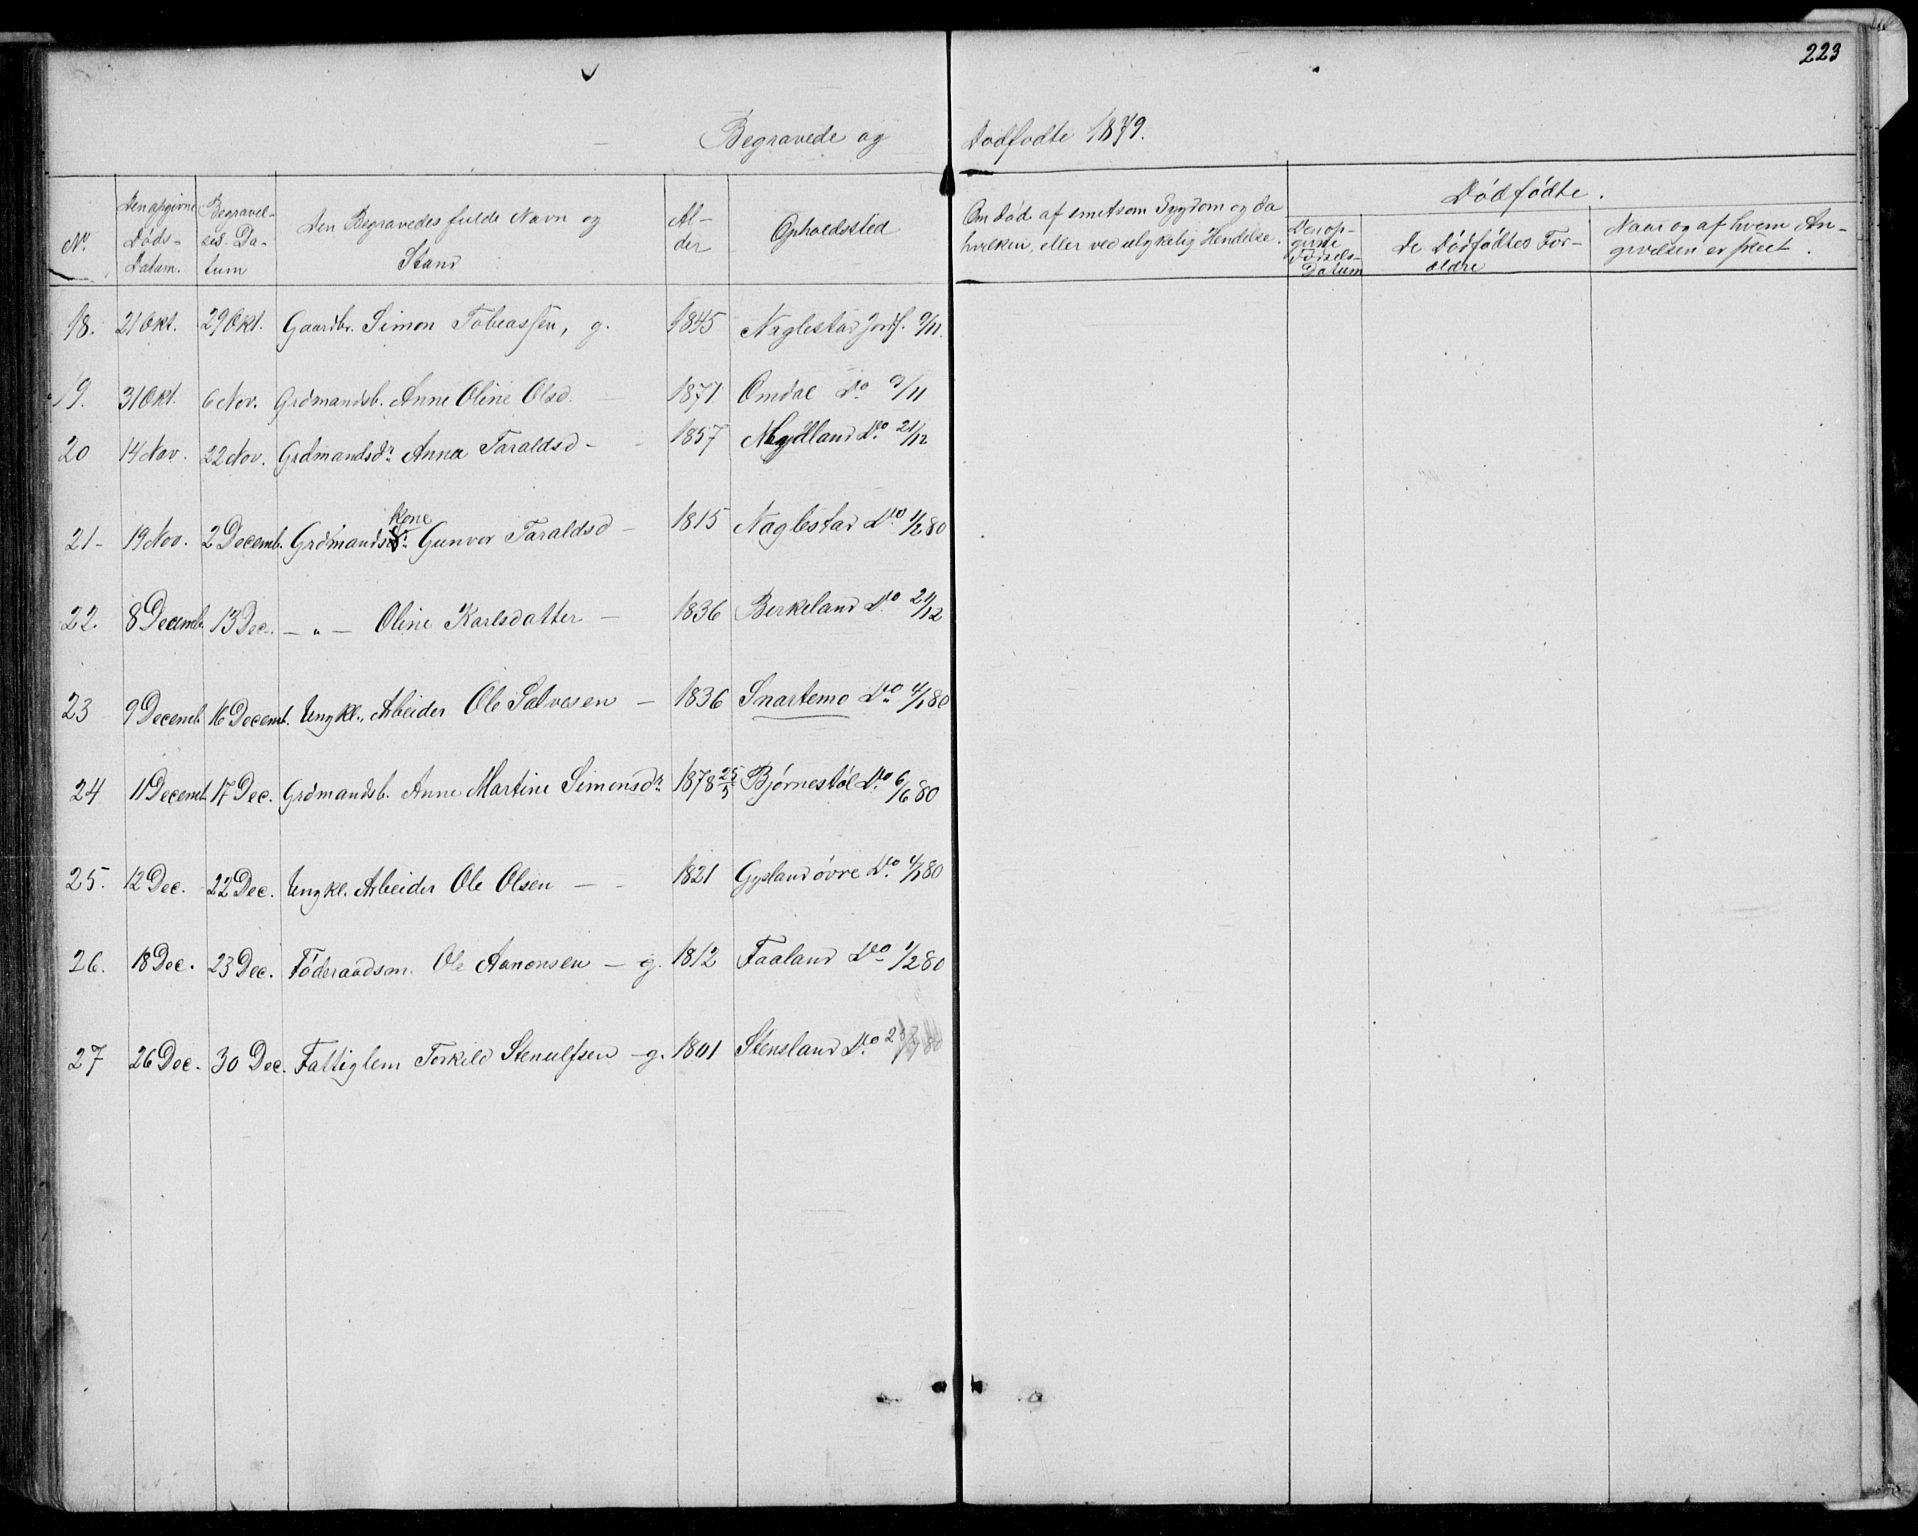 223
Begravede og Dødfødte 1879.
Dødfødte.
No. Den opgivne Døds-Datum. Begravel-ses-Da-tum Den Begravedes fulde Navn og Stand Al-der Opholdssted Om død af smitsom Sygdom og da hvilken, eller ved ulykkelig Hendelse. Den op-givne Fødsels-Datum De Dødfødtes For-ældre Naar og af hvem An-givelsen er skeet.
18. 21 Okt. 29 Okt. Gaardbr. Simon Tobiassen, g. 1845 Naglestad Jordf. 9/11.
19. 31 Okt. 6 Nov. Grdmandsb. Anne Oline Olsd. 1871 Omdal Do 9/11
20 14 Nov. 22 Nov. Grdmandsdr Anna Taraldsd - 1857 Mydland Do. 21/12
Kone
21- 19 Nov. 2 Decemb. Grdmands Gunvor Taraldsd - 1815 Naglestad Do 1/2 80
22. 8 Decemb. 13 Dec. - " - Oline Karlsdatter - 1836 Birkeland Do 21/12
23 9 Decemb. 16 Decemb. Ungkl., Arbeider Ole Salvesen - 1836 Snartemo Do 4/1 80
24 11 Decemb. 17 Dec. Grdmandsb. Anne Martine Simonsdr 1878 25/5 Bjørnestøl Do. 6/6 80
25. 12 Dec. 22 Dec. Ungkl. Arbeider Ole Olsen - - 1821 Gysland øvre Do. 4/1 80
26. 18 Dec. 23 Dec. Føderaadsm. Ole Aanonsen - g. 1812 Faaland Do 1/2 80
27 26 Dec. 30 Dec. Fattiglem Torkild Stenulfsen - g. 1801 Stensland Do.